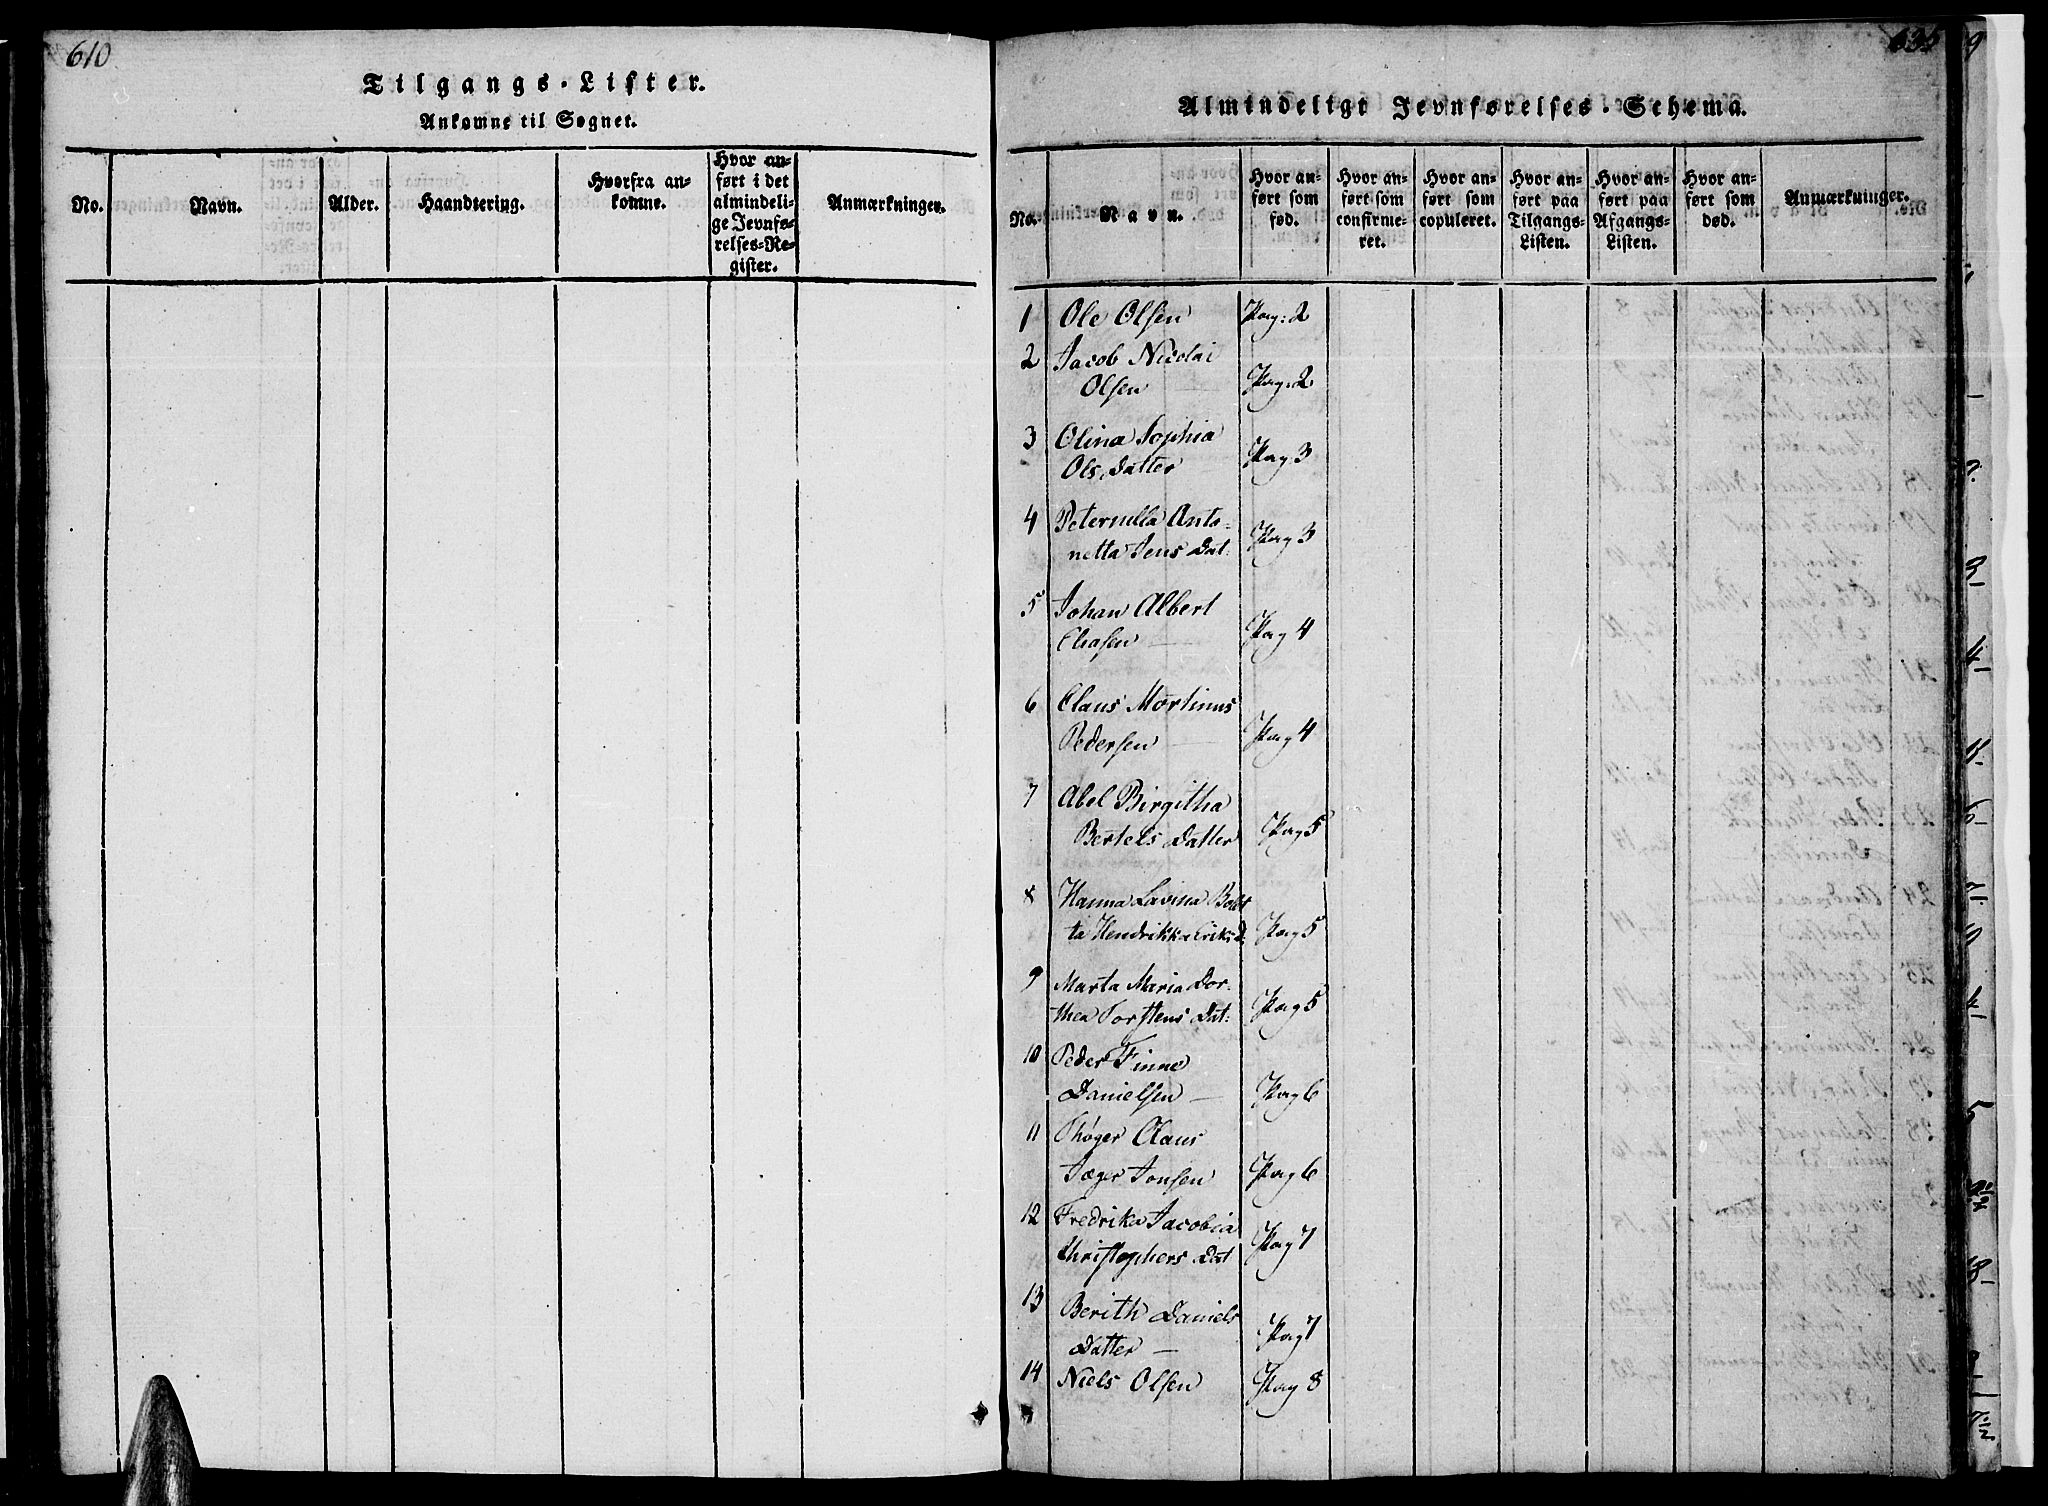 610
Tilgangs-Lister.
Ankomne til Sognet.
No.
Navn.
Alder.
Haandtering.
Hvorfra an-
komne.
Hvor an-
ført i det
almindeli-
ge Jevnfø-
relses-Re-
gister.
Anmærkninger.
635
Almindeligt Jevnførelses-Schema.
No.
Navn.
Hvor an-
ført som
fød.
Hvor an-
ført som
confirme-
ret.
Hvor an-
ført som
copuleret.
Hvor an-
ført paa
Tilgangs-
Listen.
Hvor an-
ført paa
Afgangs-
Listen.
Hvor an-
ført som
død.
Anmærkninger.
1 Ole Olsen Pag: 2
2 Jacob Nicolai
Olsen Pag: 2
3 Olina Sophia
Ols Datter Pag 3
4 Peternella Anto-
netta Jens Dat: Pag 3
5 Johan Albert
Eliasen Pag 4
6 Claus Mortinus
Pedersen Pag 4
7 Abel Birgitha
Bertels Datter Pag 5
8 Hanna Lavina
ta Hendrikka Eriks D: Pag 5
9 Marta Maria Dor-
thea Torstens Dat: Pag 5
10 Peder Finne
Danielsen Pag 6
11 Thøger Claus
Jæger Jonsen Pag 6
12 Fredrika Jacobia
Christophers Dat Pag 7
13 Berith Daniels
Datter Pag 7
14 Niels Olsen Pag 8